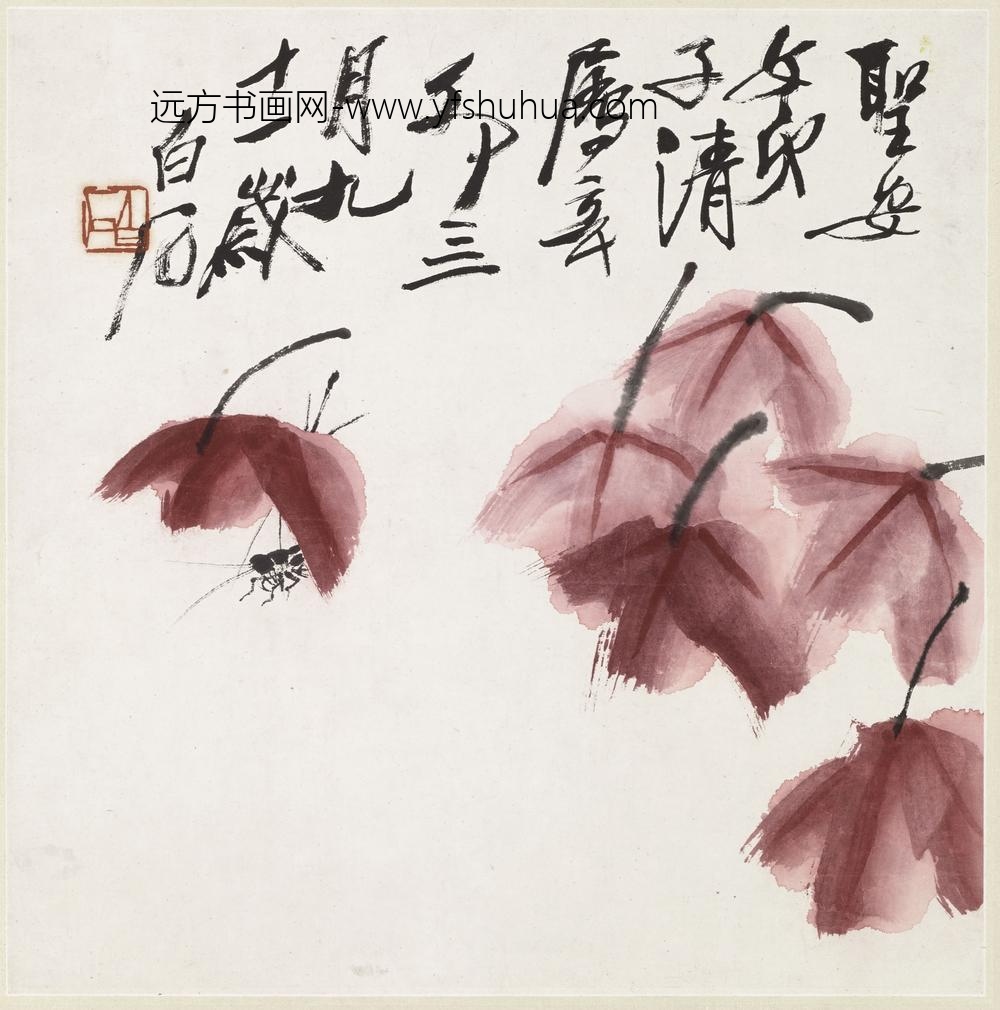 聖安
女
子清
屬辛
卯三
月九
十一歲
白石
白石
远方书画网-www.yfshuhua.com